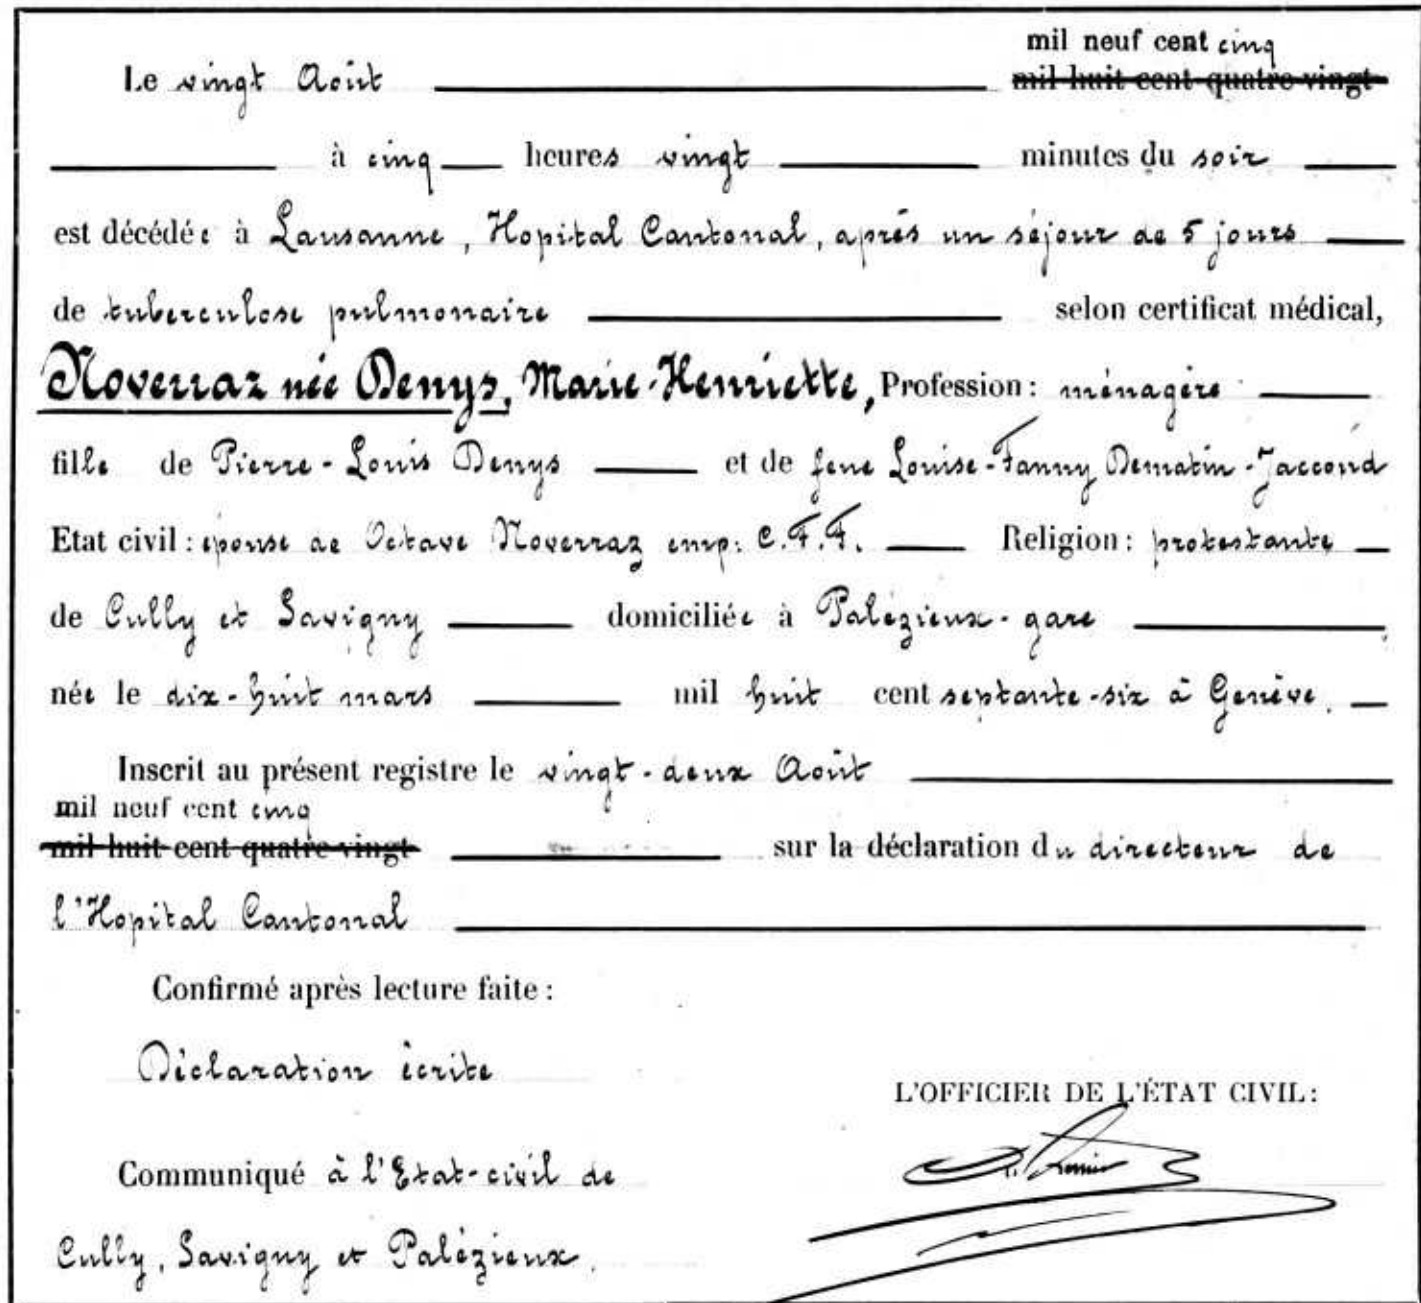 mil neuf cent cinq
Le vingt Août mil huit cent quatre-vingt
à cinq heures vingt minutes du soir
est décédée à Lausanne, Hopital Cantonal, après un séjour de 5 jours
de tuberculose pulmonaire selon certificat médical,
Noverraz née Denys, Marie-Henriette, Profession: ménagère
fille de Pierre-Louis Denys et de feue Louise-Fanny Dematin-Jaccoud
Etat civil: épouse de Octave Noverraz emp: C.F.F. Religion: protestante
de Cully et Savigny domiciliée à Palézieux-gare
née le dix-huit mars mil huit cent septante-six à Genève.
Inscrit au présent registre le vingt-deux Août
mil neuf cent cinq
mil huit cent quatre-vingt sur la déclaration du directeur de
l'Hopital Cantonal
Confirmé après lecture faite:
Déclaration écrite
L'OFFICIER DE L'ÉTAT CIVIL:
Communiqué à l'Etat-civil de
Cully, Savigny et Palézieux.